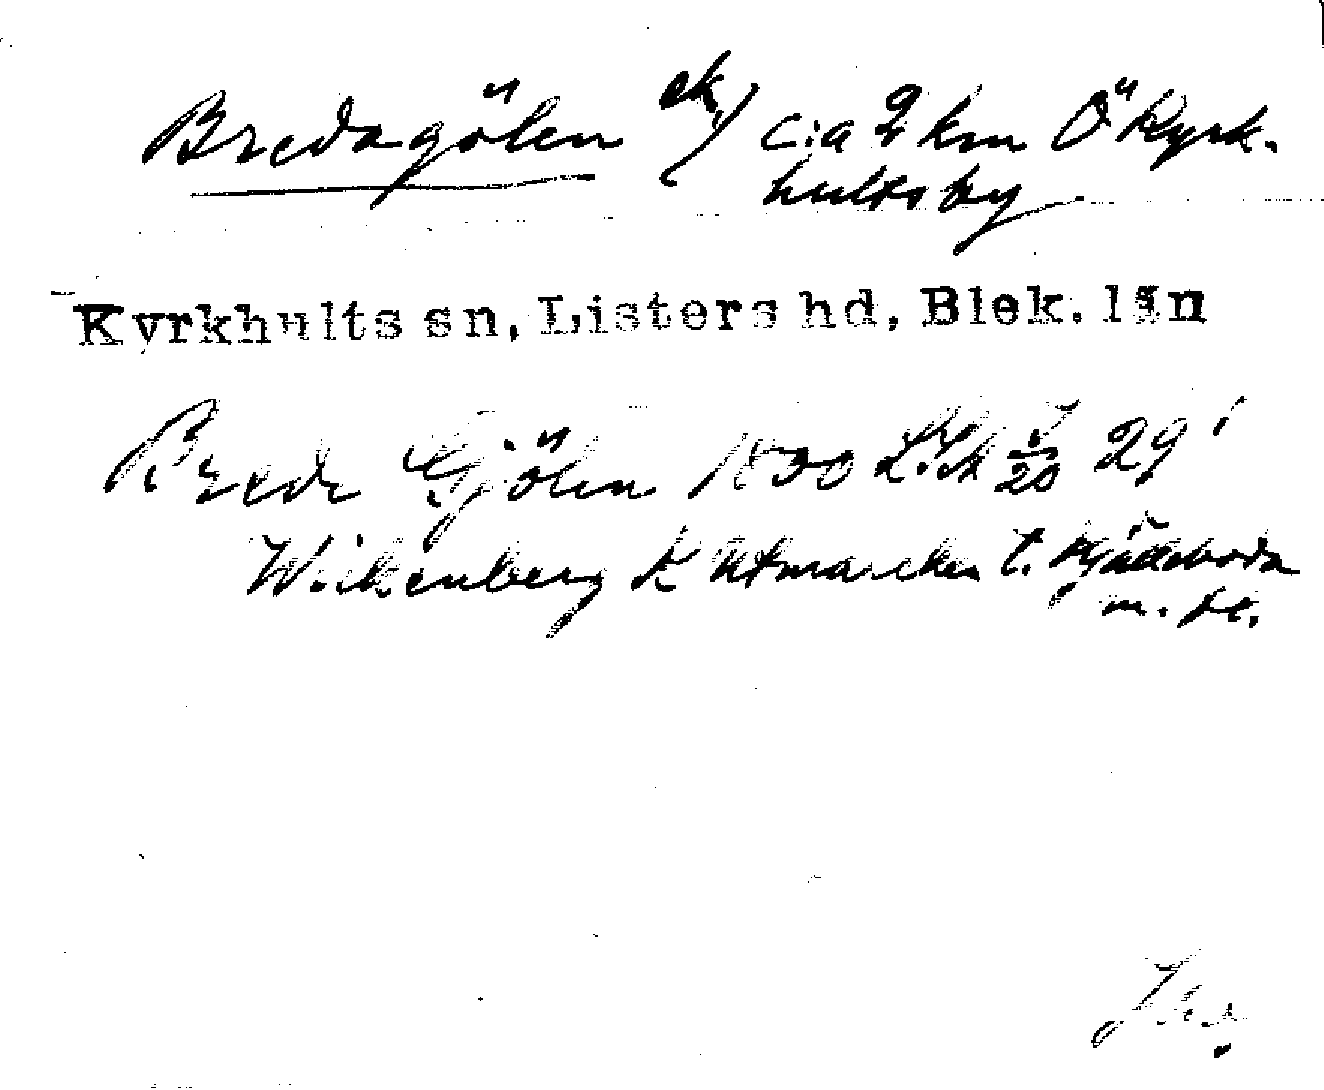 Bredagölen ek.) c:a 2 km Ö Kyrk-
hults by
Kyrkhults sn, Listers hd, Blek. län
Brede Gjölen 1830 LSA 29
Wickenberg K Utmarcken t. Kjälleboda
m. fl.